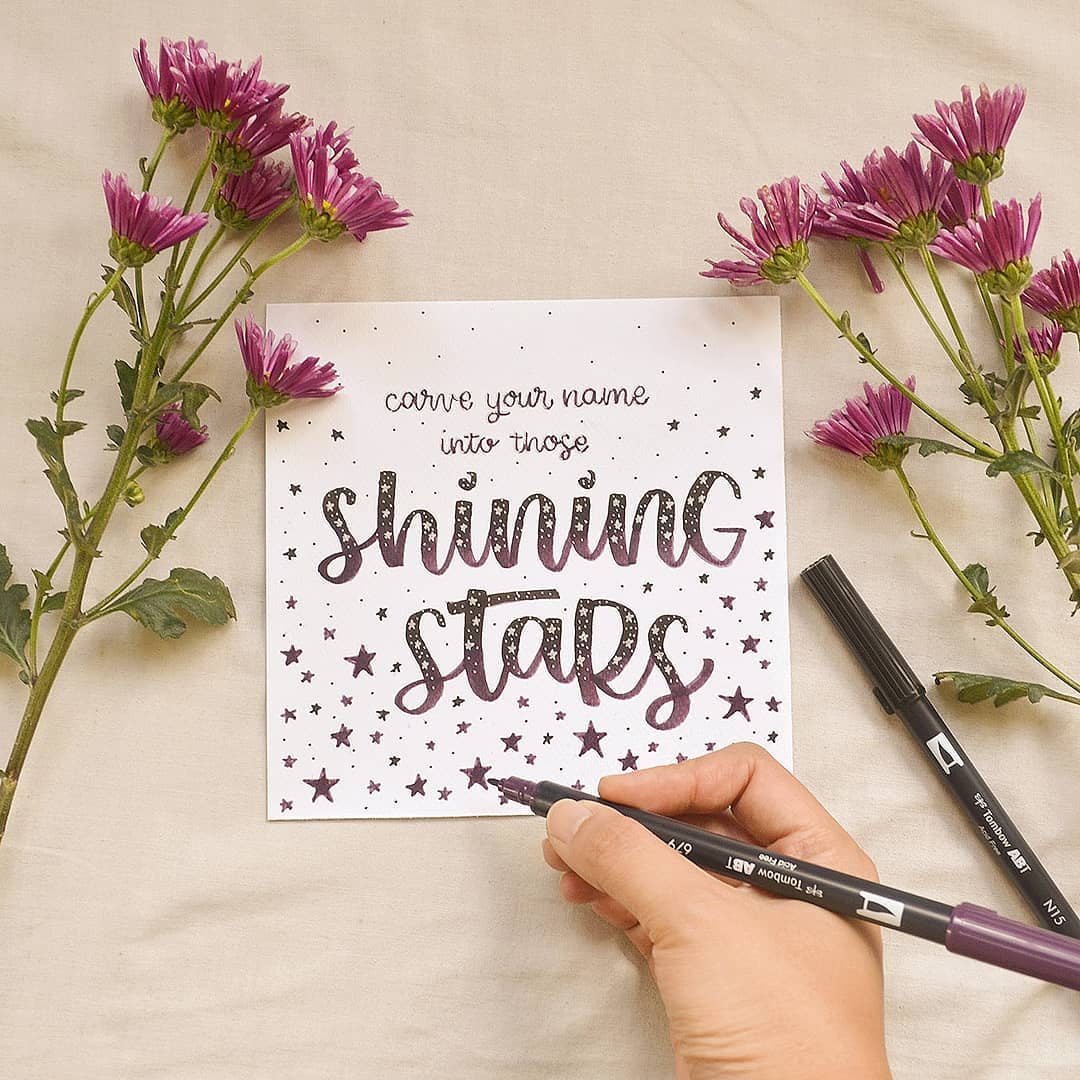 carve your name
into those
shininG
staRs
Tombow ABT
Acid Free
N15
679
Tombow ABT
Acid Free